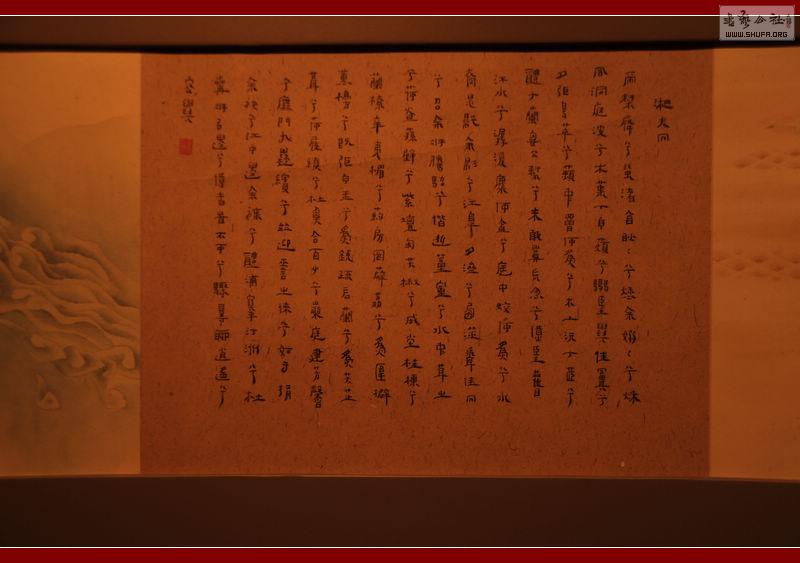 湘夫人
帝子降兮北渚目眇:兮愁余嫋:兮秋
風洞庭波兮木葉下白薠兮騁望與佳期兮
夕張鳥萃兮蘋中罾何爲兮木上沅有芷兮
醴有蘭思公子兮未敢言荒忽兮遠望觀
流水兮潺湲麋何食兮庭中蛟何爲兮水
裔朝馳余馬兮江皋夕濟兮西澨聞佳人
兮召余將騰駕兮偕逝築室兮水中葺之
兮荷蓋蓀壁兮紫壇匊芳椒兮成堂桂棟兮
蘭橑辛夷楣兮葯房罔薜荔兮爲帷擗
蕙櫋兮既張白玉兮爲鎮疏石蘭兮爲芳芷
葺兮荷屋繚兮杜衡合百草兮實庭建芳馨
兮廡門九嶷繽兮並迎靈之來兮如雲捐
余袂兮江中遺余褋兮醴浦搴汀洲兮杜
若將以遺兮遠者時不可兮驟得聊逍遙兮
容與
書藝公社
WWW.SHUFA.ORG